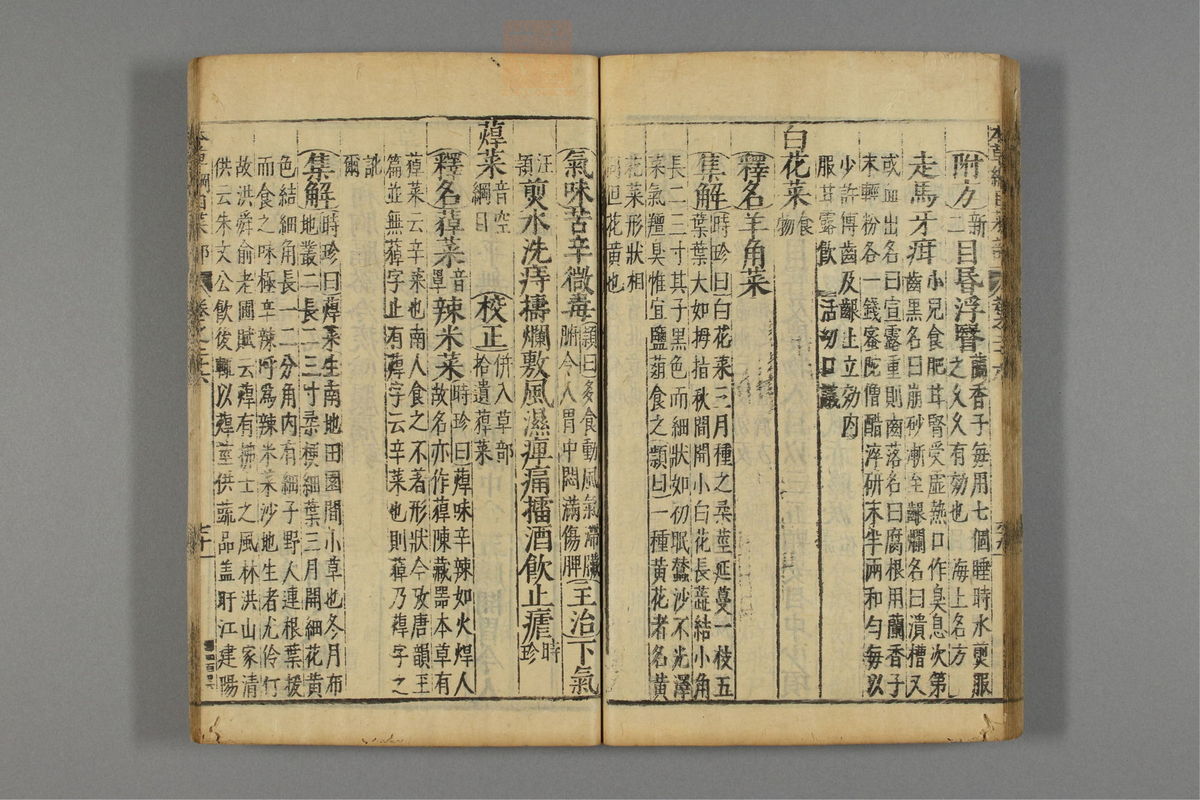 附方新二目昬浮瞖蘭香子每用七個睡時水煎服
之久久有効也海上名方
走馬牙疳小兒食肥甘腎受虛熱口作臭息次第
齒黑名曰崩砂漸至齦爛名曰潰槽又
或血出名曰宣露重則齒落名曰腐根用蘭香子
末輕粉各一錢蜜陀僧醋淬研末半兩和勻每以
少許傅齒及齦上立効內
服甘露飲活幼口議
白花菜食物
釋名羊角菜
集解時珍曰白花菜三月種之柔莖延蔓一枝五
葉葉大如拇指秋間開小白花長蕋結小角
長二三寸其子黑色而細狀如初眠蠶沙不光澤
菜氣羶臭惟宜鹽葅食之頴曰一種黃花者名黃
花菜形狀相
同但花黃也
氣味苦辛微毒頴曰多食動風氣滯臟
腑令人胃中悶滿傷脾主治下氣
汪頴煎水洗痔擣爛敷風濕痺痛擂酒飲止瘧時珍
蔊菜音空綱目校正併入草部拾遺蔊菜
釋名𦻎菜音罩辣米菜時珍曰蔊味辛辣如火焊人
故名亦作𦻎陳藏器本草有
𦻎菜云辛菜也南人食之不著形狀今攷唐韻玉
篇並無𦻎字止有蔊字云辛菜也則𦻎乃蔊字之
訛
爾
集解時珍曰蔊菜生南地田園間小草也冬月布
地叢二長二三寸柔梗細葉三月開細花黃
色結細角長一二分角內有細子野人連根葉拔
而食之味極辛辣呼爲辣米菜沙地生者尤伶仃
故洪舜俞老圃賦云蔊有拂士之風林洪山家清
供云朱文公飲後輒以蔊莖供蔬品蓋盱江建陽